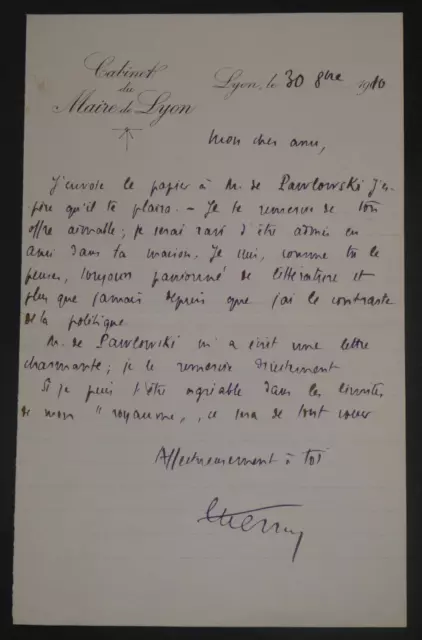 Cabinet
du
Maire de Lyon
Lyon, le 30 8bre 1910
Mon cher ami,
J'envoie le papier à M. de Pawlowski J'es-
père qu'il te plaira. — Je te remercie de ton
offre aimable ; je serai ravi d'être admis en
ami dans ta maison. Je suis, comme tu le
penses, toujours passionné de littérature et
plus que jamais depuis que j'ai le contraste
de la politique
M. de Pawlowski m'a écrit une lettre
charmante ; je le remercie directement
Si je puis t'être agréable dans les limites
de mon "royaume", ce sera de tout coeur
Affectueusement à toi